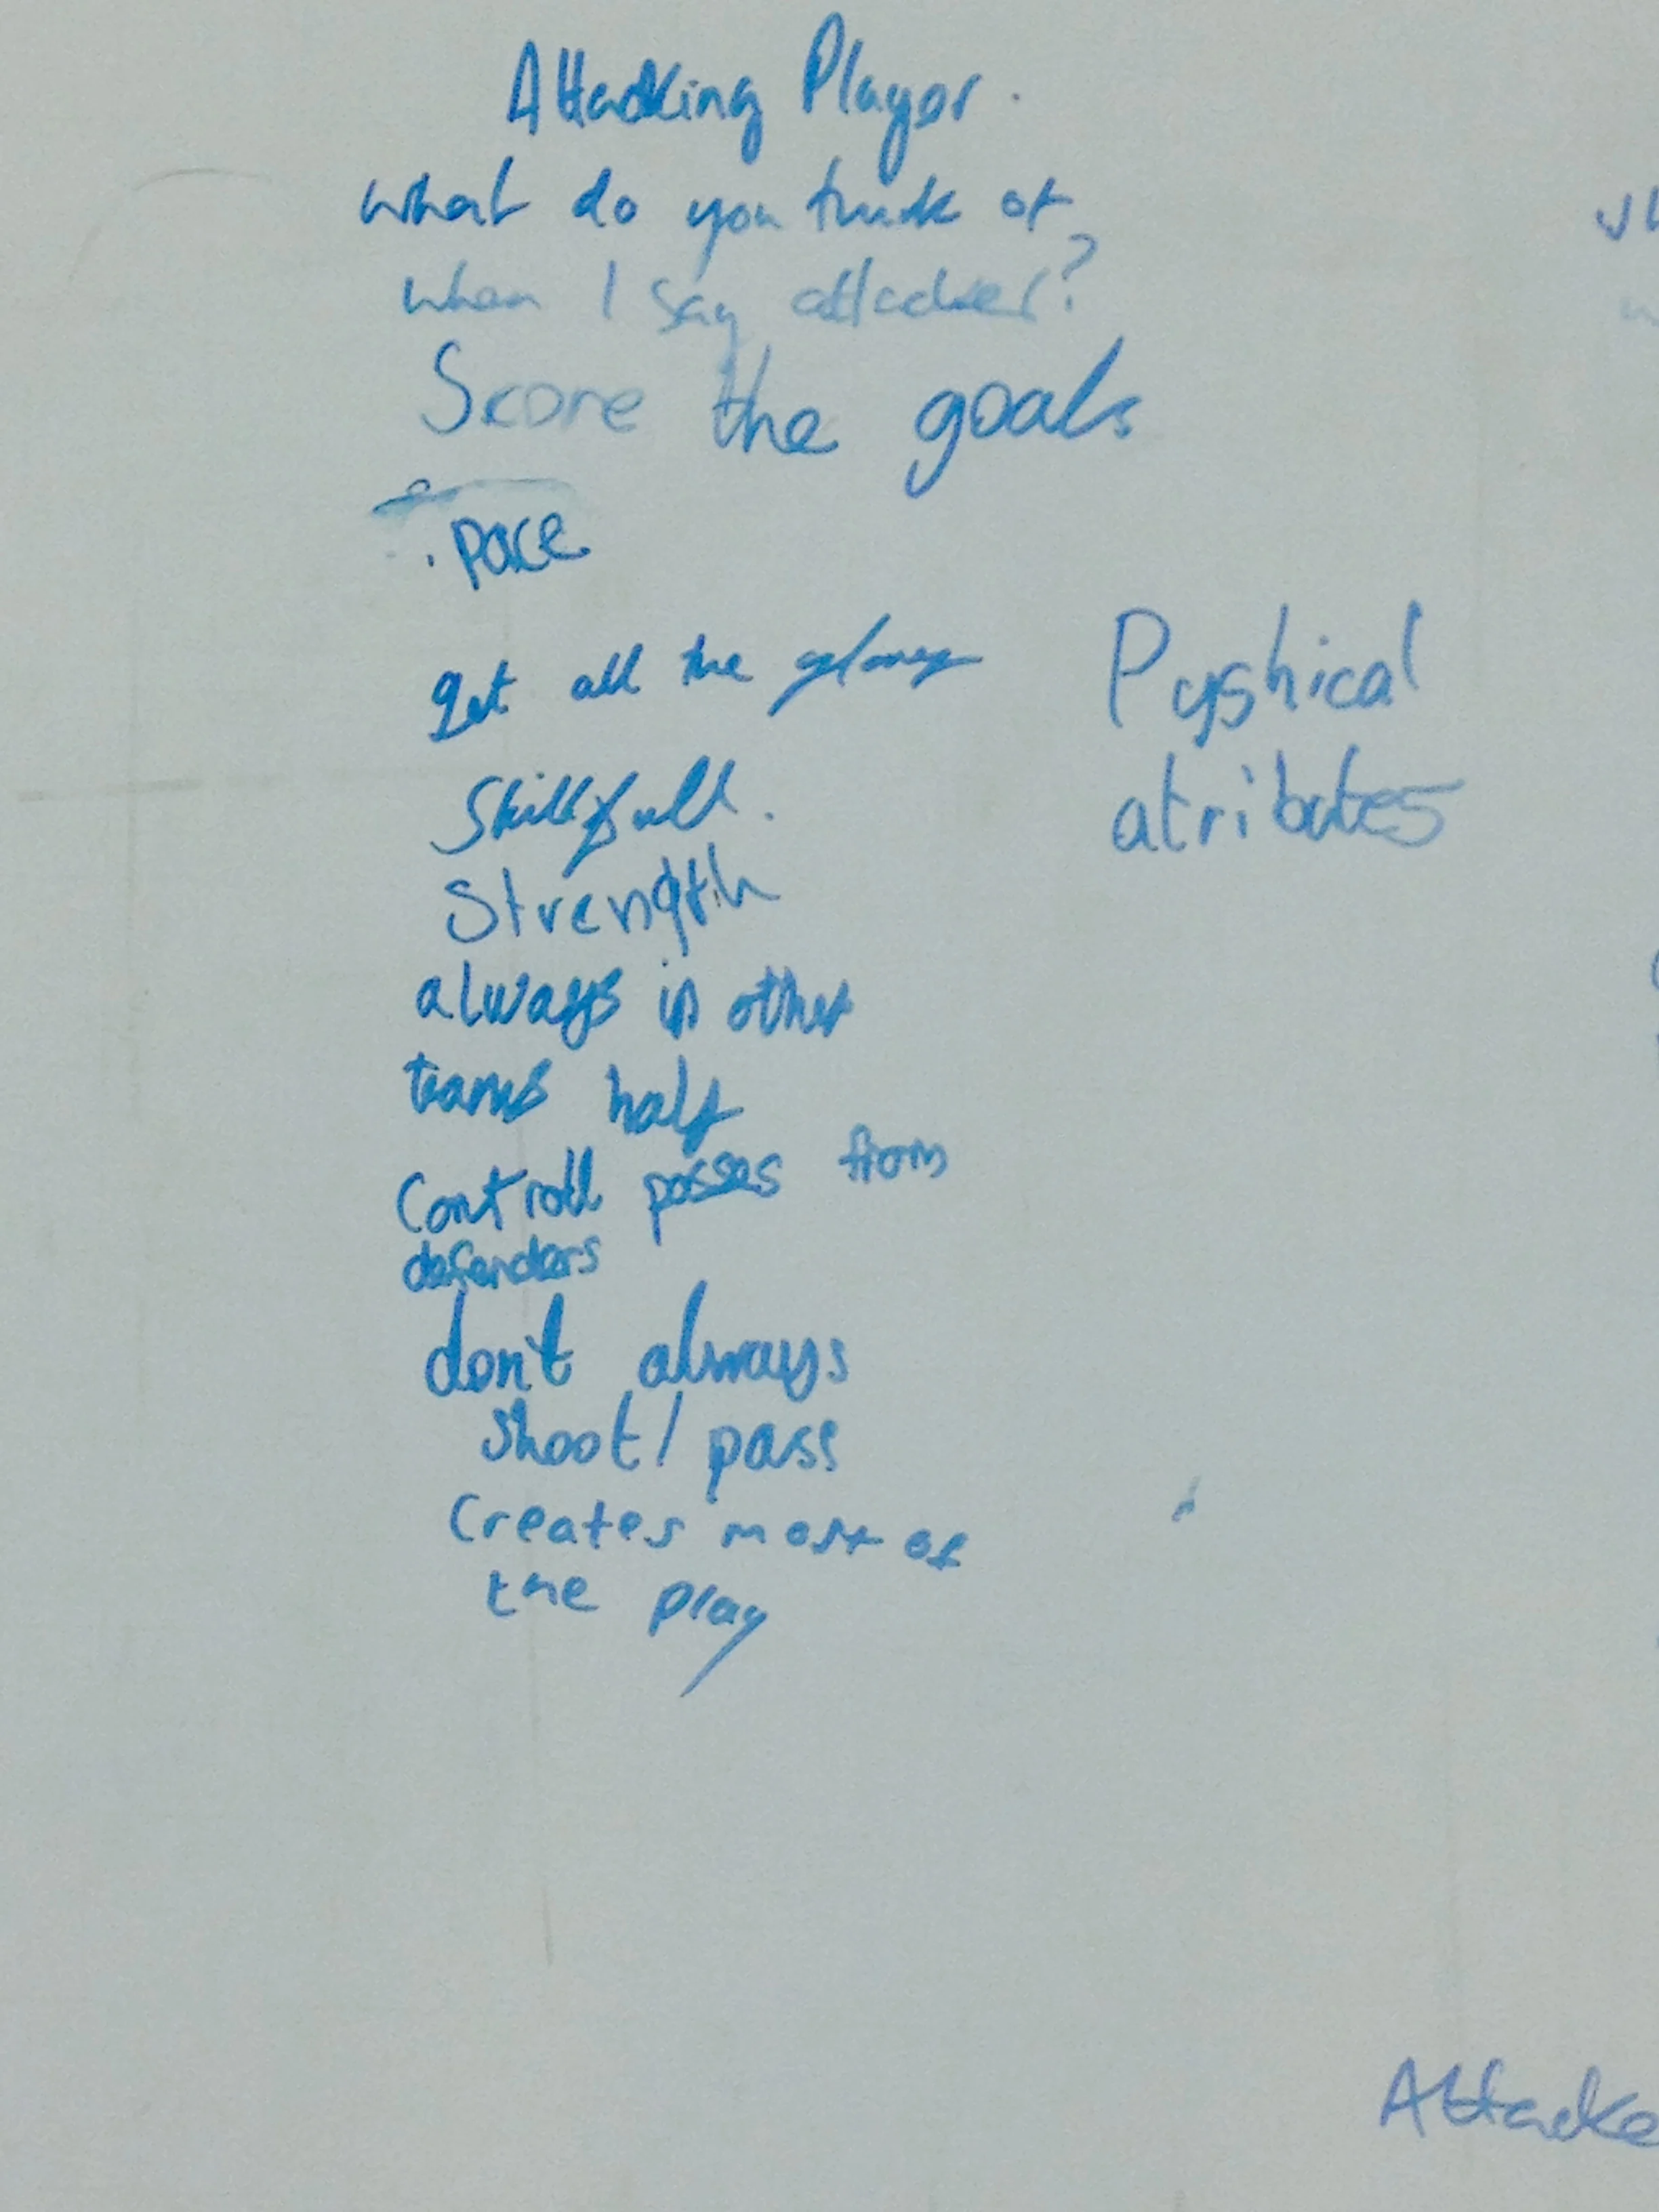 Attacking Player.
what do you think of
when I say attacker?
Score the goals
. pace
get all the glorey
Pyshical
Skillfull.
atributes
Strength
always in other
teams half
Controll passes from
defenders
don't always
shoot/pass
Creates most of
the play
Attacke